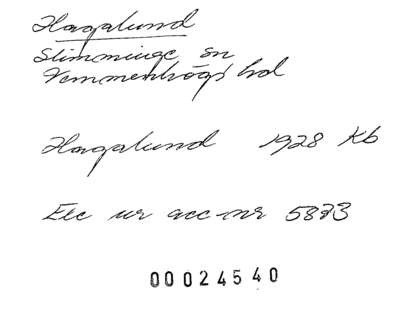 Hagalund
Slimminge sn
Vemmenhögs hd
Hagalund 1928 Kb
Exc ur acc-nr 5873
00024540